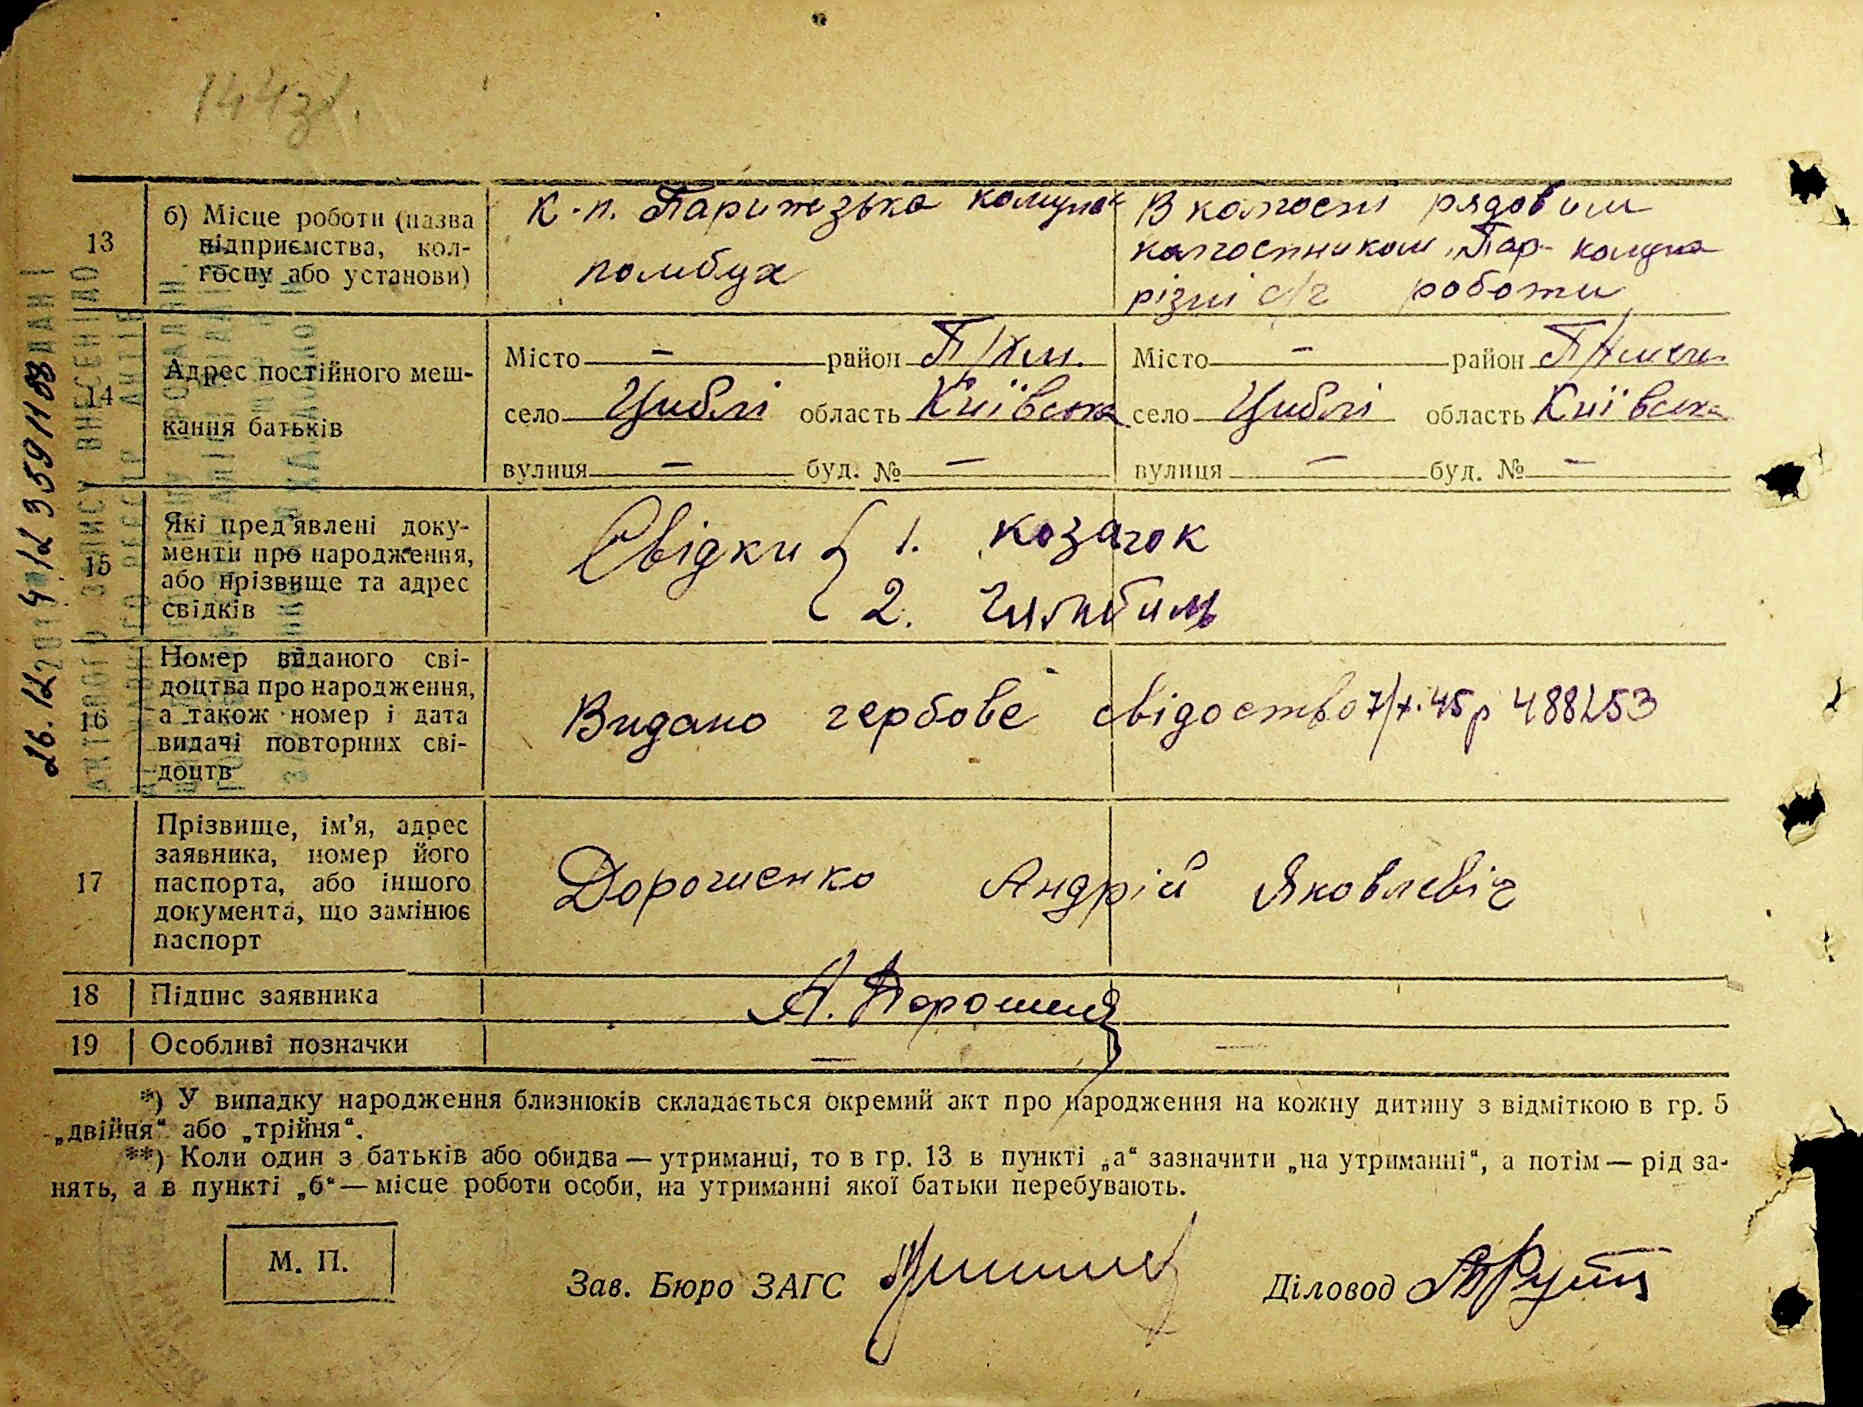 144зв.
13 б) Місце роботи (назва підприємства, колгоспу або установи)
к-п. Паритезька комуна
помбух
В колгоспі рядовим
колгоспником „Пар- комуна
різні с/г роботи
14 Адрес постійного мешкання батьків
Місто — район П/Хм. Місто — район П/Хмел.
село Циблі область Київська село Циблі область Київська
вулиця — буд. № — вулиця — буд. № —
15 Які пред'явлені документи про народження, або прізвище та адрес свідків
Свідки { 1. козачок
2.
16 Номер виданого свідоцтва про народження, а також номер і дата видачі повторних свідоцтв
Видано гербове свідоство 7/х.45р 488253
17 Прізвище, ім'я, адрес заявника, номер його паспорта, або іншого документа, що замінює паспорт
Дорошенко Андрій Яковлевіч
18 Підпис заявника
А. Дорошен
19 Особливі позначки — —
*) У випадку народження близнюків складається окремий акт про народження на кожну дитину з відміткою в гр. 5
„двійня“ або „трійня“.
**) Коли один з батьків або обидва — утриманці, то в гр. 13 в пункті „а“ зазначити „на утриманні“, а потім — рід за-
нять, а в пункті „б“ — місце роботи особи, на утриманні якої батьки перебувають.
М. П.
Зав. Бюро ЗАГС Діловод